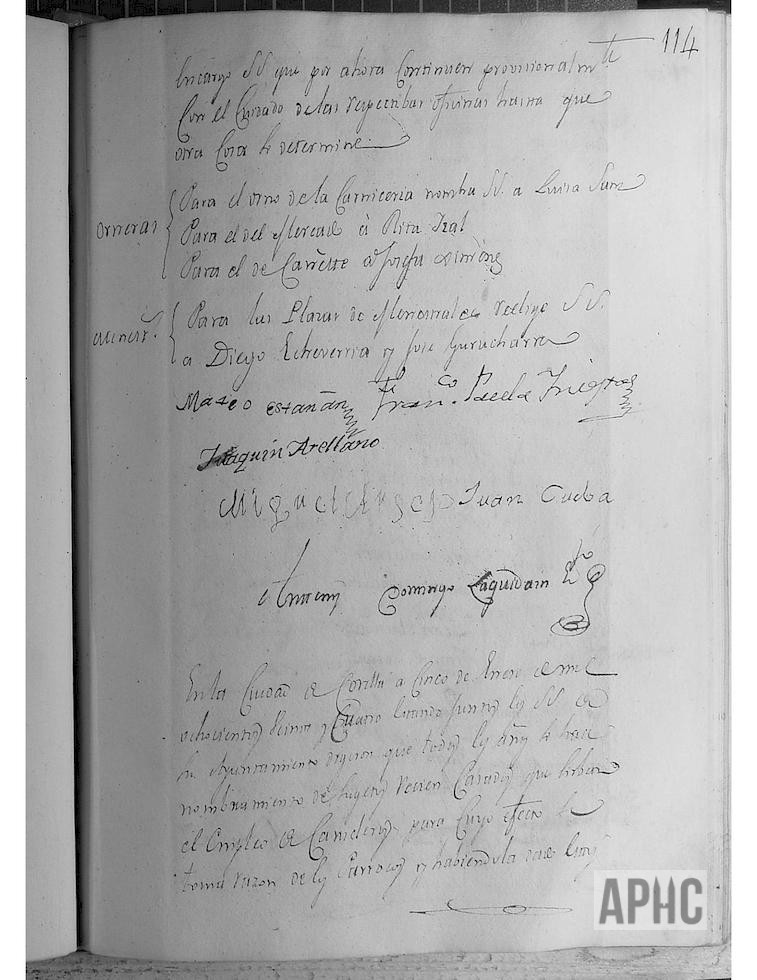 114
encargo SS. que por ahora Continuen provisionalmte
Con el Cuidado de las respectibas oficinas hasta que
otra Cosa se determine
orneras
Para el orno de la Carniceria nombra SS. a Luisa Sanz
Para el del Mercado à Rita Yzal
Para el de Cañete a Josefa Ximenez
Para las Plazas de Menestrales recligo SS.
a Diego Echeverria y Jose Gurucharri
Mateo estañan Franco. Paula
Juaquin Arellano
Miguel Juan Cueba
Antemi Domingo Laquidain Eno
En la Ciudad de Corella a Cinco de Enero de mil
ochocientos veinte y Cuatro estando Juntos los SS. de
su Ayuntamiento digeron que todos los años se hace
nombramiento de sugetos recien Casados que sirban
el Empleo de para Cuyo efecto se
toma razon de los Parrocos y habiendola dado estos
APHC